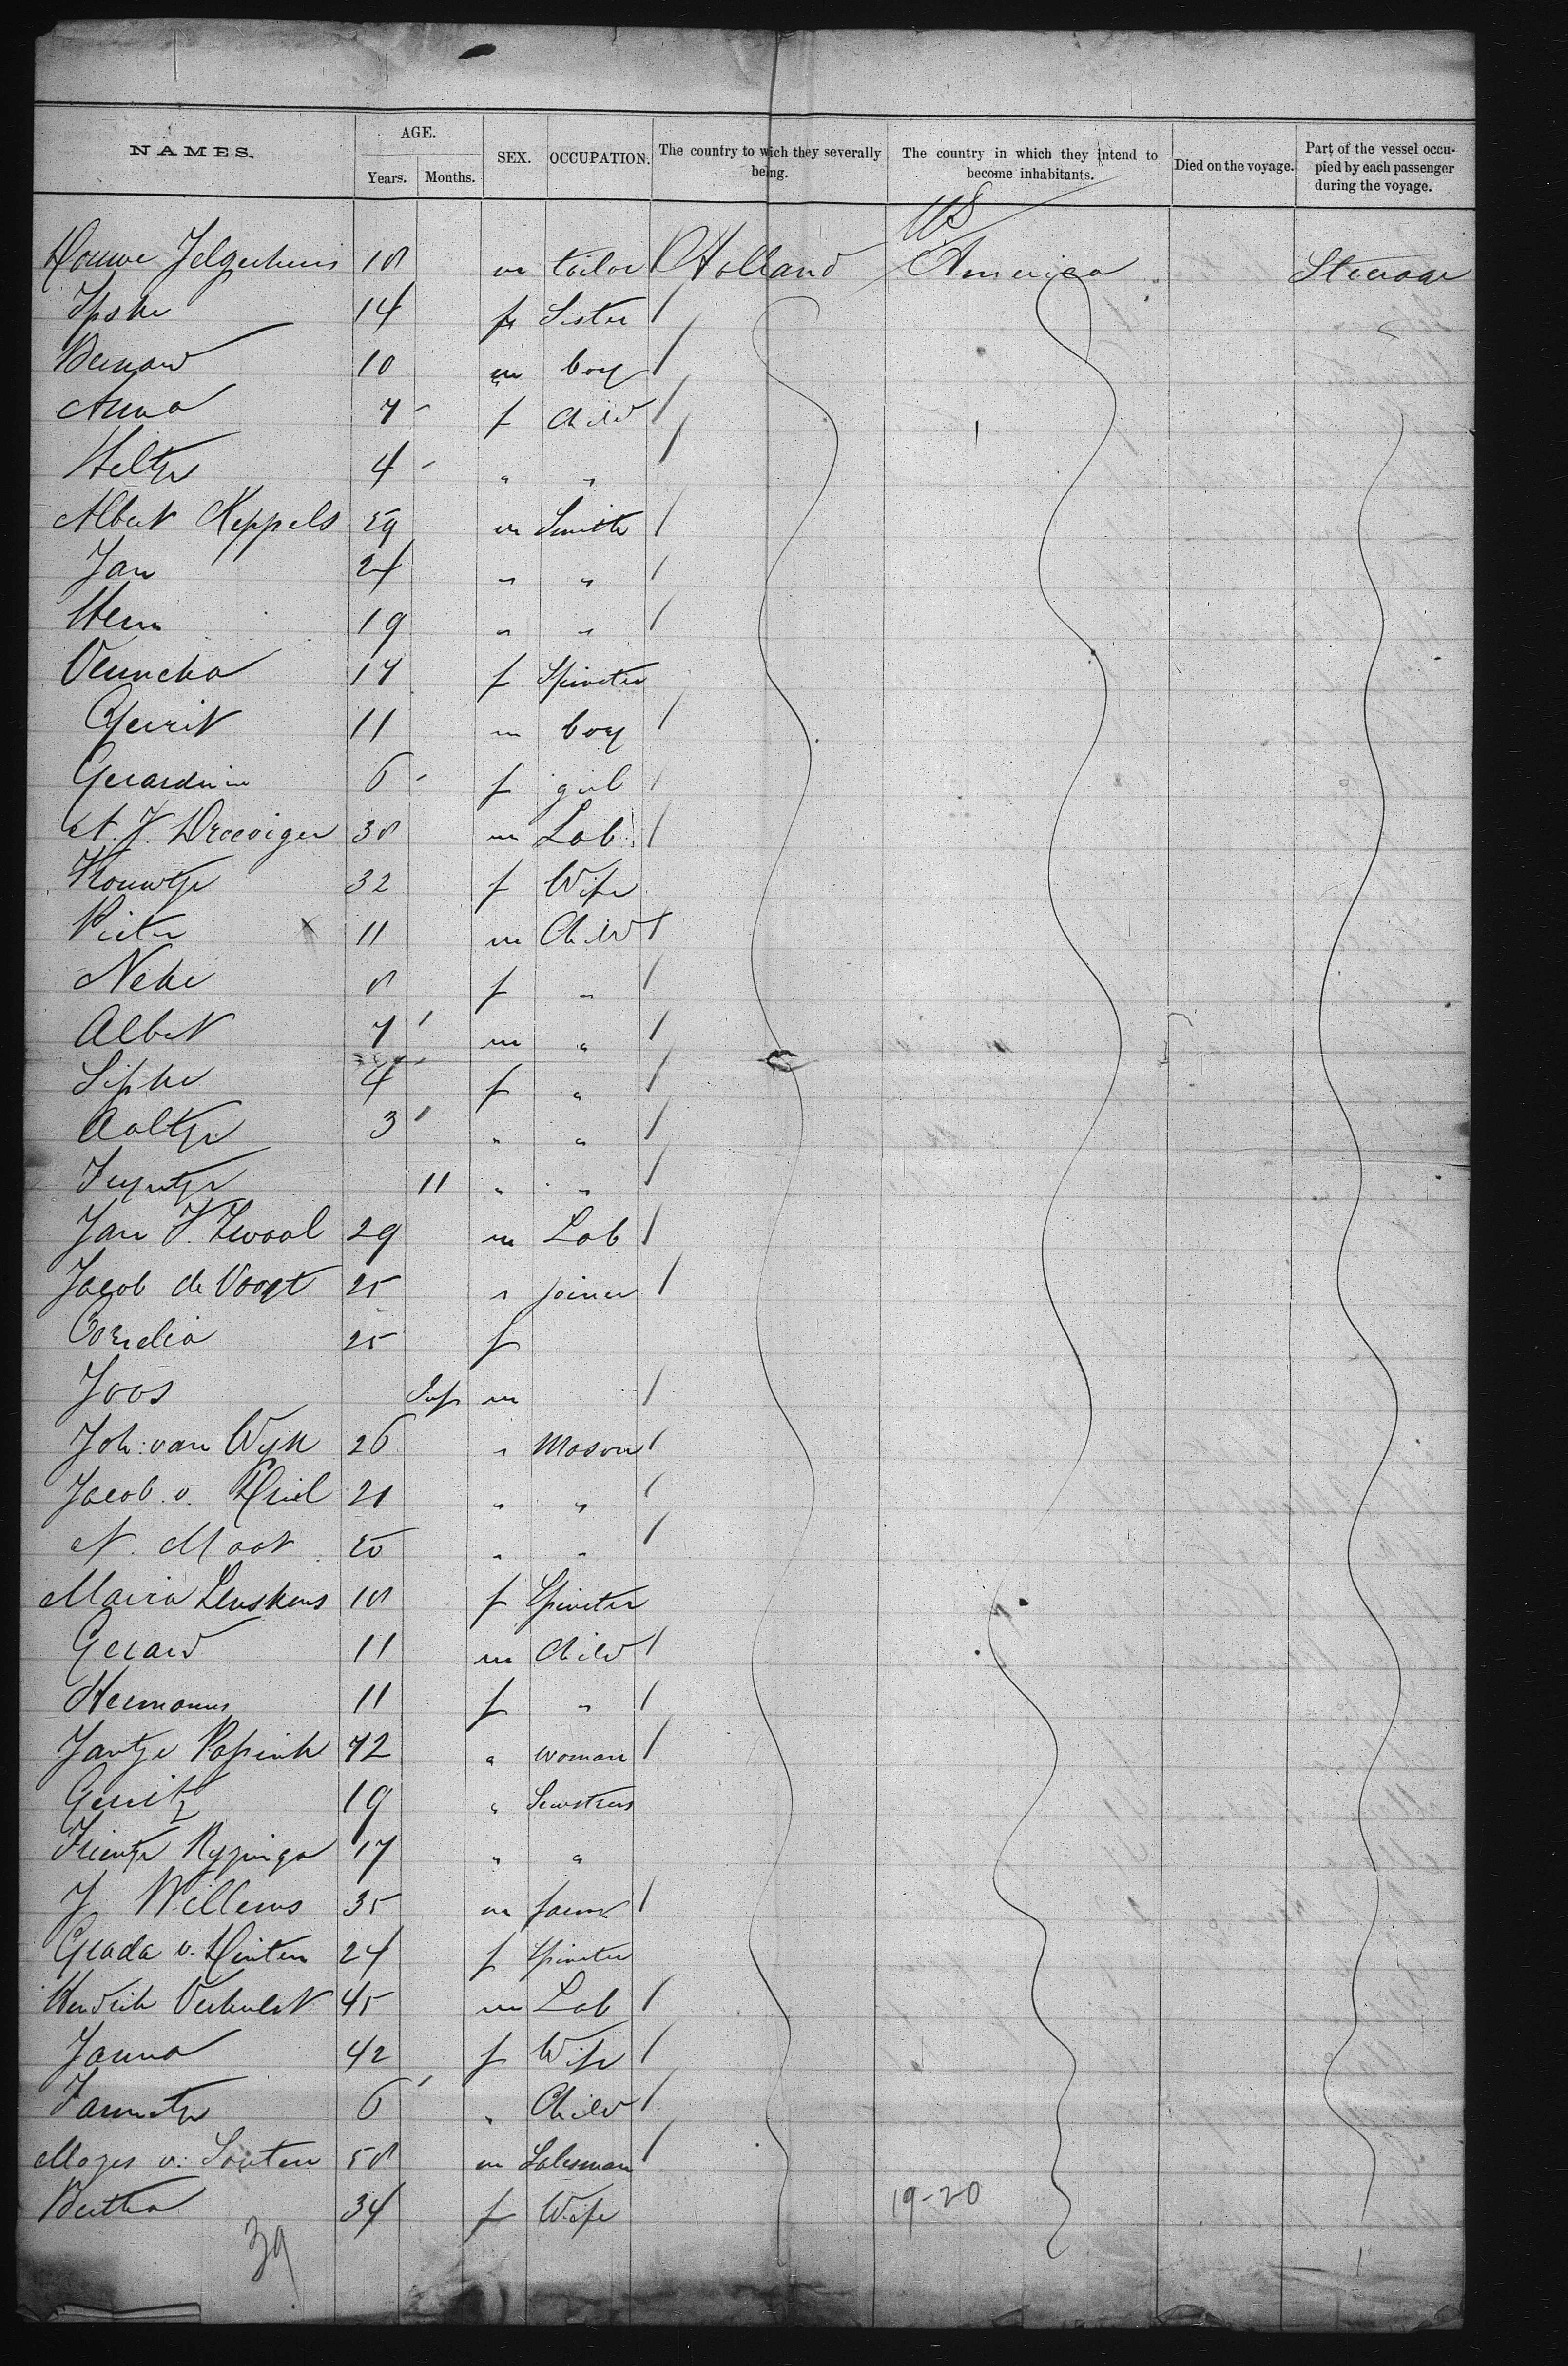 NAMES. AGE. SEX. OCCUPATION. The country to wich they severally being. The country in which they intend to become inhabitants. Died on the voyage. Part of the vessel occupied by each passenger during the voyage.
Years. Months.
US
Douwe Jelgerhuis 18 m tailor Holland America Steerage
Ipske 14 f Sister
Bernard 10 m boy
Anna 7 f Child
Hiltje 4 " "
Albert Keppels 59 m Smith
Jan 24 " "
Hein 19 " "
17 f Spinster
Gerrit 11 m boy
Gerardina 6 f girl
38 m Lab.
32 f Wife
Pieter 11 m Child
Neke 8 f "
Albert 7 m "
Sipke 4 f "
Aaltje 3 " "
Feyntje 11 " "
Jan V. Zwaal 29 m Lab
Jacob de Voogt 25 " joiner
Cornelia 25 f
Joos Inf m
Joh: van Wyk 26 " Mason
Jacob v. Driel 21 " "
" "
Maria Lenskens 18 f Spinster
Gerard 11 m Child
Hermanus 11 f "
Jantje Papink 72 " woman
19 " Sewstress
Trientje 17 " "
J Willems 35 m farmr
Grada v. Hinten 24 f Spinster
Hendrik Verhulst 45 m Lab
Janna 42 f Wife
Jannetje 6 " Child
Mozes v. Santen 58 m Salesman
Bertha 34 f Wife
19-20
39